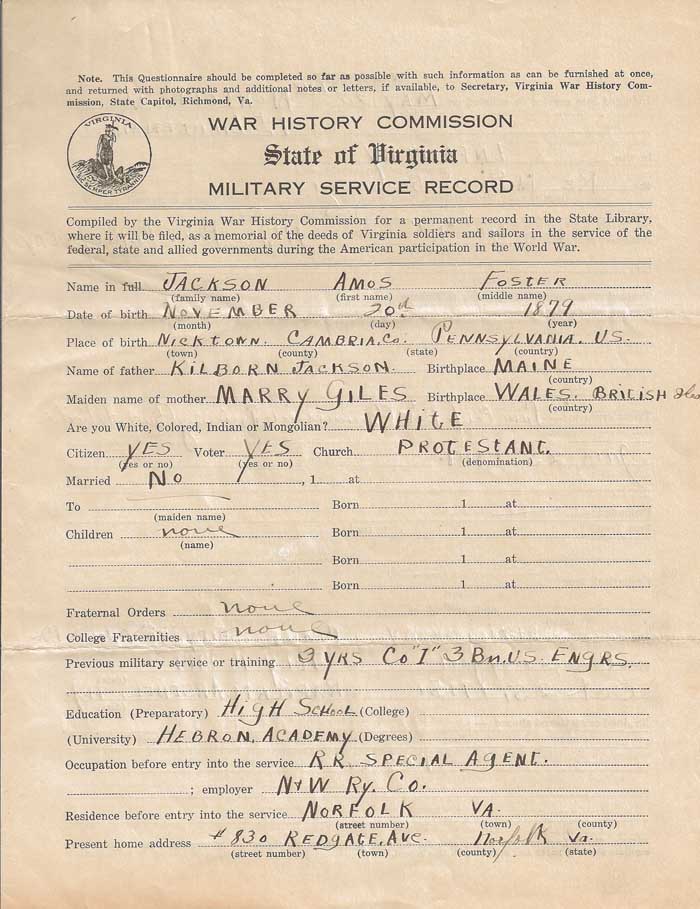 Note. This Questionnaire should be completed so far as possible with such information as can be furnished at once,
and returned with photographs and additional notes or letters, if available, to Secretary, Virginia War History Com-
mission, State Capitol, Richmond, Va.
VIRGINIA
SIC SEMPER TYRANNIS
WAR HISTORY COMMISSION
State of Virginia
MILITARY SERVICE RECORD
Compiled by the Virginia War History Commission for a permanent record in the State Library,
where it will be filed, as a memorial of the deeds of Virginia soldiers and sailors in the service of the
federal, state and allied governments during the American participation in the World War.
Name in full JACKSON AMOS FOSTER
(family name) (first name) (middle name)
Date of birth NOVEMBER 20th 1879
(month) (day) (year)
Place of birth NICKTOWN CAMBRIA, Co. PENNSYLVANIA. US.
(town) (county) (state) (country)
Name of father KILBORN JACKSON. Birthplace MAINE
(country)
Maiden name of mother MARRY GILES Birthplace WALES. BRITISH Isles
(country)
Are you White, Colored, Indian or Mongolian? WHITE
Citizen YES Voter YES Church PROTESTANT.
(yes or no) (yes or no) (denomination)
Married No , 1 at
To Born 1 at
(maiden name)
Children none Born 1 at
(name)
Born 1 at
Born 1 at
Fraternal Orders none
College Fraternities none
Previous military service or training 3 YRS Co "I" 3 Bn. US. ENGRS.
Education (Preparatory) HIGH SCHOOL (College)
(University) HEBRON, ACADEMY (Degrees)
Occupation before entry into the service RR SPECIAL AGENT.
; employer N+W Ry. Co.
Residence before entry into the service NORFOLK VA.
(street number) (town) (county)
Present home address # 830 REDGATE, AVE. Norfolk Va.
(street number) (town) (county) (state)